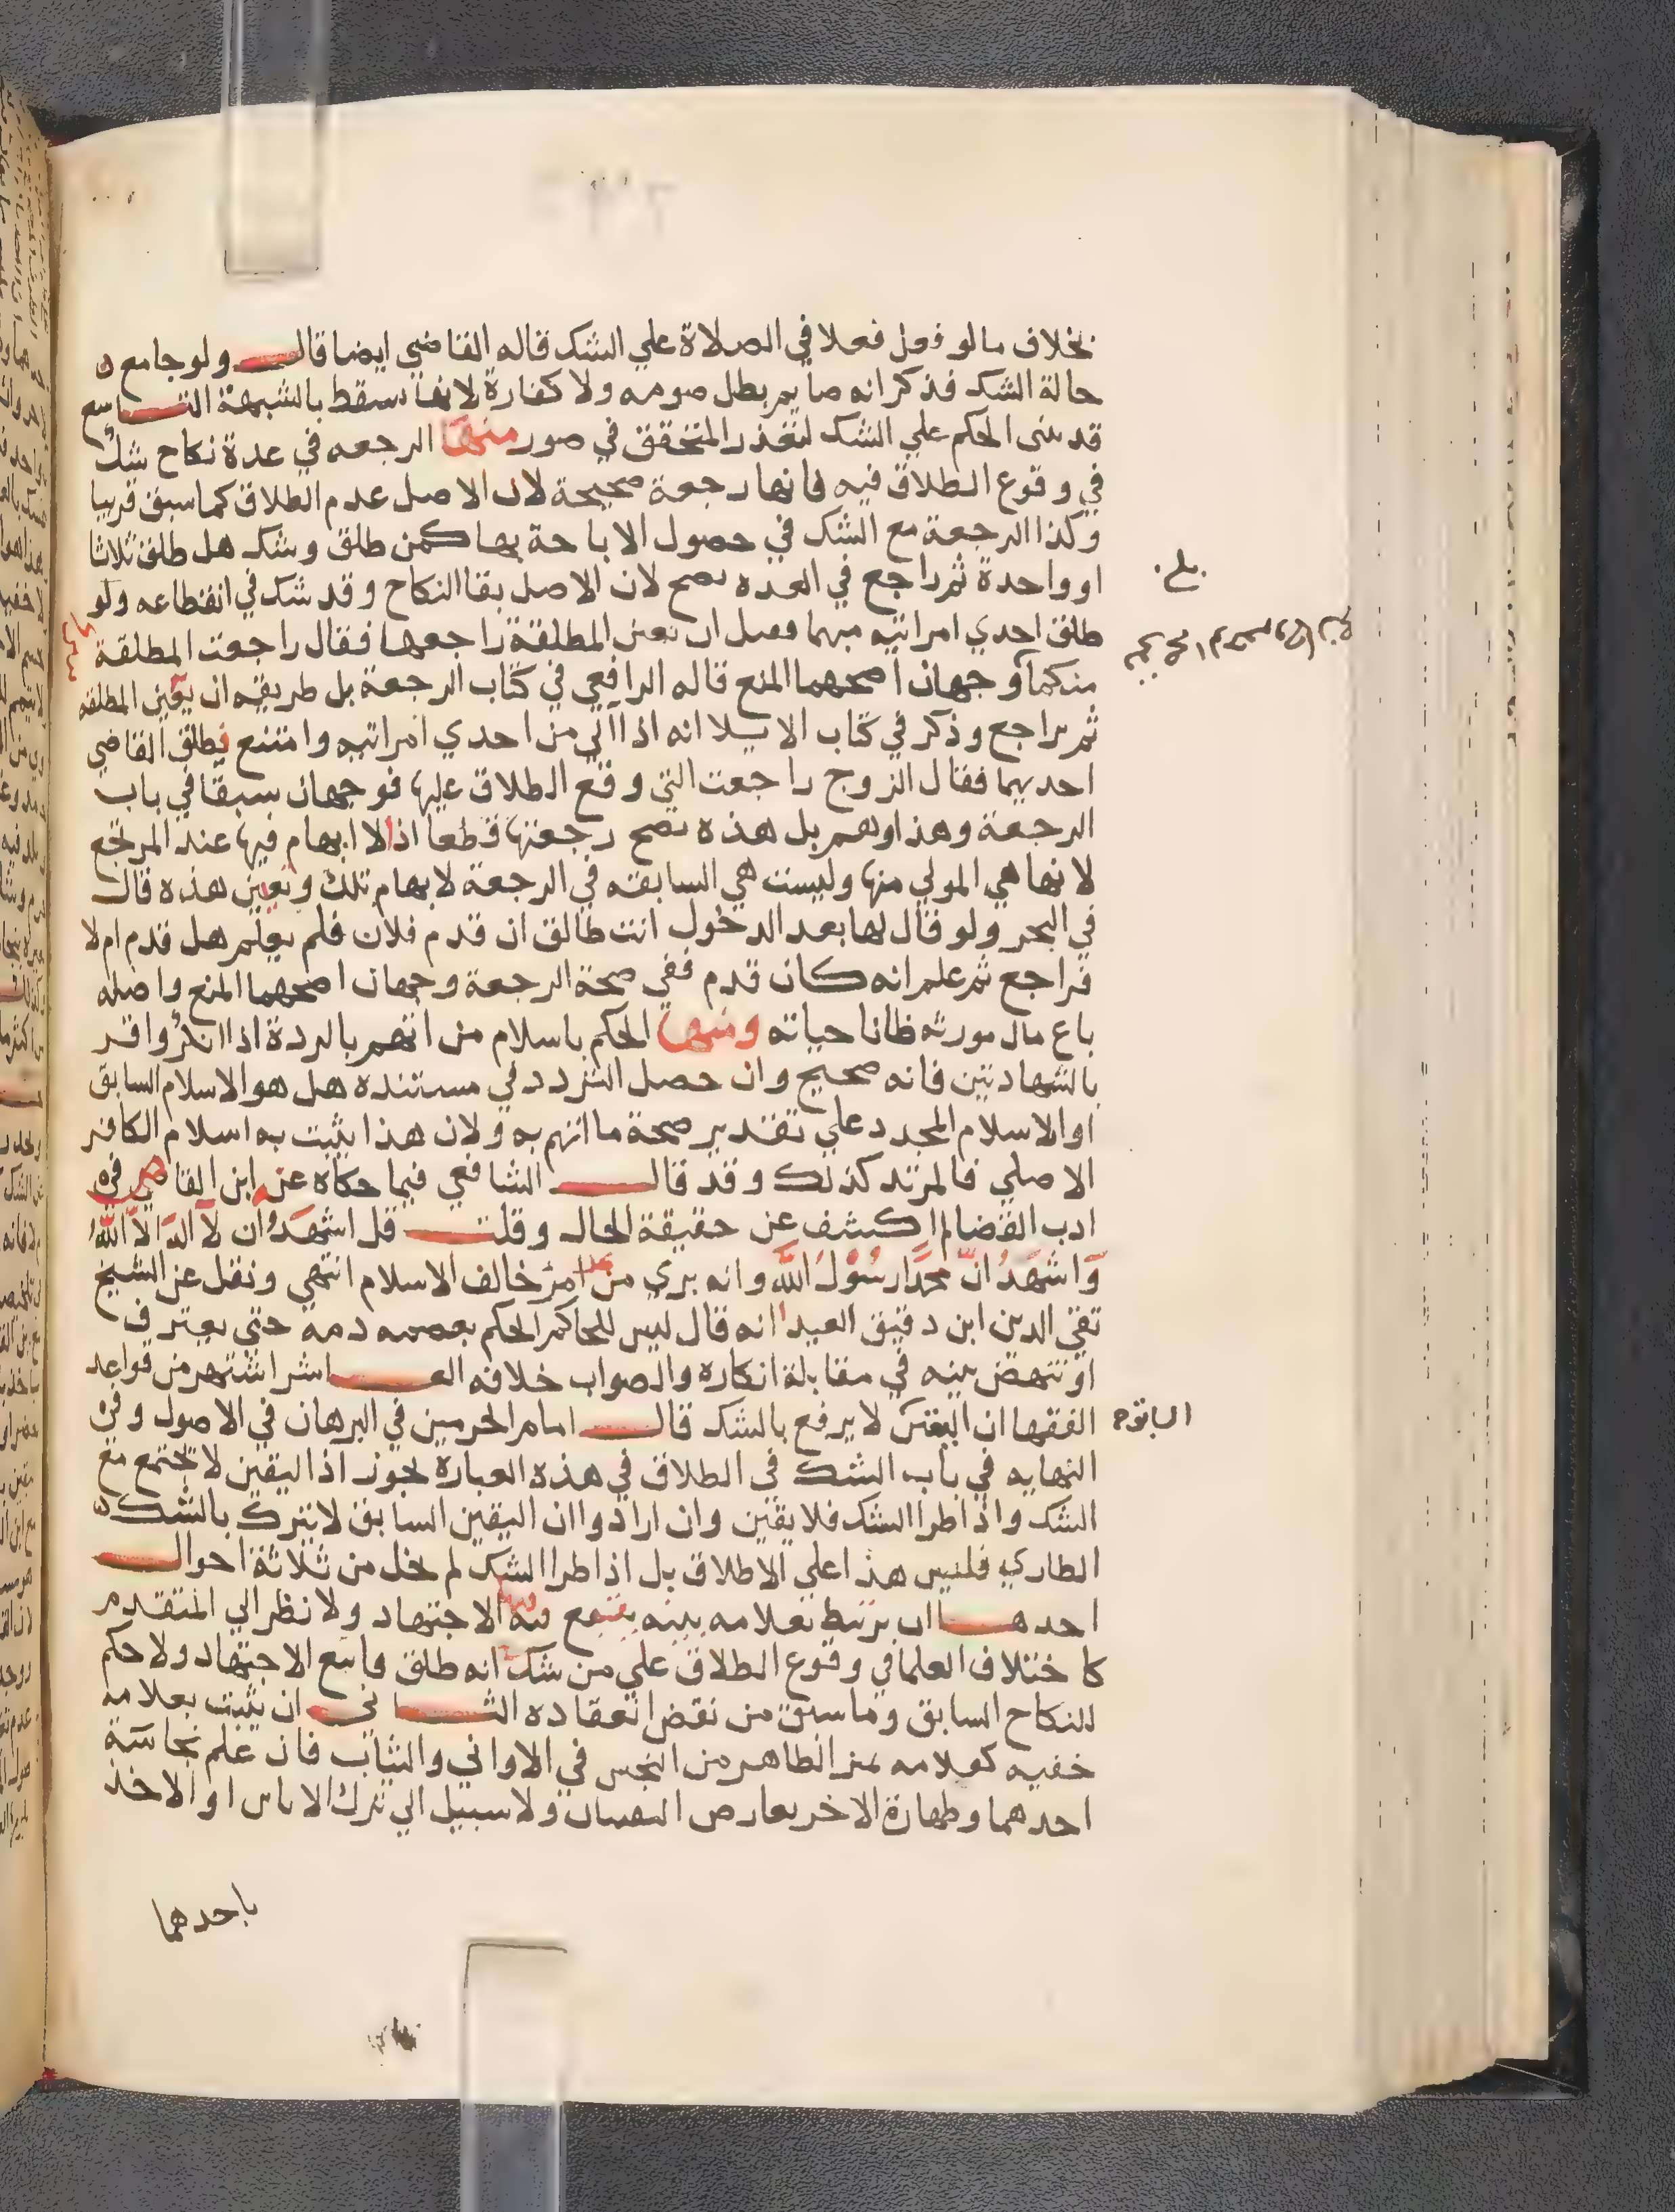 بخلاف مالو فعل فعلا في الصلاة علي الشك قاله القاضي ايضا قال ولو جامع
حالة الشك فذكر انه صايم بطل صومه ولا كفارة لانها تسقط بالشبهة التاسع
قد يبنى الحكم علي الشك لتعذر التحقق في صور منها الرجعه في عدة نكاح شك
في وقوع الطلاق فيه فانها رجعة صحيحة لان الاصل عدم الطلاق كما سبق قريبا
وكذا الرجعة مع الشك في حصول الاباحة بها كمن طلق وشك هل طلق ثلاثا
او واحدة ثم راجع في العده يصح لان الاصل بقا النكاح وقد شك في انقطاعه ولو
طلق احدي امراتيه مبهما فقبل ان يعين المطلقة راجعها فقال راجعت المطلقة
منكما فوجهان اصحهما المنع قاله الرافعي في كتاب الرجعة بل طريقه ان يعين المطلقه
ثم يراجع وذكر في كتاب الايلا انه اذا آلي من احدي امراتيه وامتنع فطلق القاضي
احديهما فقال الزوج راجعت التي وقع الطلاق عليها فوجهان سبقا في باب
الرجعة وهذا وهم بل هذه تصح رجعتها قطعا اذ لا ابهام فيها عند المرتجع
لانها هي المولي منها وليست هي السابقه في الرجعة لابهام تلك وتعين هذه قال
في البحر ولو قال لها بعد الدخول انت طالق ان قدم فلان فلم يعلم هل قدم ام لا
فراجع ثم علم انه كان قدم ففي صحة الرجعة وجهان اصحهما المنع واصله
باع مال مورثه ظانا حياته ومنها الحكم باسلام من اتهم بالردة اذا انكر واقر
بالشهادتين فانه صحيح وان حصل التردد في مستنده هل هو الاسلام السابق
او الاسلام المجدد علي تقدير صحة ما اتهم به ولان هذا يثبت به اسلام الكافر
الاصلي فالمرتد كذلك وقد قال الشافعي فيما حكاه عن ابن القاص في
ادب القضا لم اكشف عن حقيقة الحال وقلت قل اشهد ان لا اله الا الله
واشهد ان محمدا رسول الله وانه بري من كل من خالف الاسلام انتهي ونقل عن الشيخ
تقي الدين ابن دقيق العيد انه قال ليس للحاكم الحكم بعصمه دمه حتي يعترف
او تنهض بينه في مقابلة انكاره والصواب خلافه العاشر اشتهر من قواعد
الفقها ان اليقين لا يرفع بالشك قال امام الحرمين في البرهان في الاصول وفي
النهايه في باب الشك في الطلاق في هذه العبارة تجوز اذ اليقين لا يجتمع مع
الشك واذا طرا الشك فلا يقين وان ارادوا ان اليقين السابق لا يترك بالشك
الطاري فليس هذا علي الاطلاق بل اذا طرا الشك لم يخل من ثلاثة احوال
احدها ان يرتبط بعلامه بينه يتبع فيه الاجتهاد ولا نظر الي المتقدم
كاختلاف العلما في وقوع الطلاق علي من شك انه طلق فاتبع الاجتهاد ولا حكم
للنكاح السابق وما سبق من نقض انعقاده الثاني ان يثبت بعلامه
خفيه كعلامه تميز الطاهر من النجس في الاواني والثياب فان علم نجاسة
احدهما وطهارة الاخر تعارض اليقينان ولا سبيل الي ترك الاناس او الاخذ
باحدهما